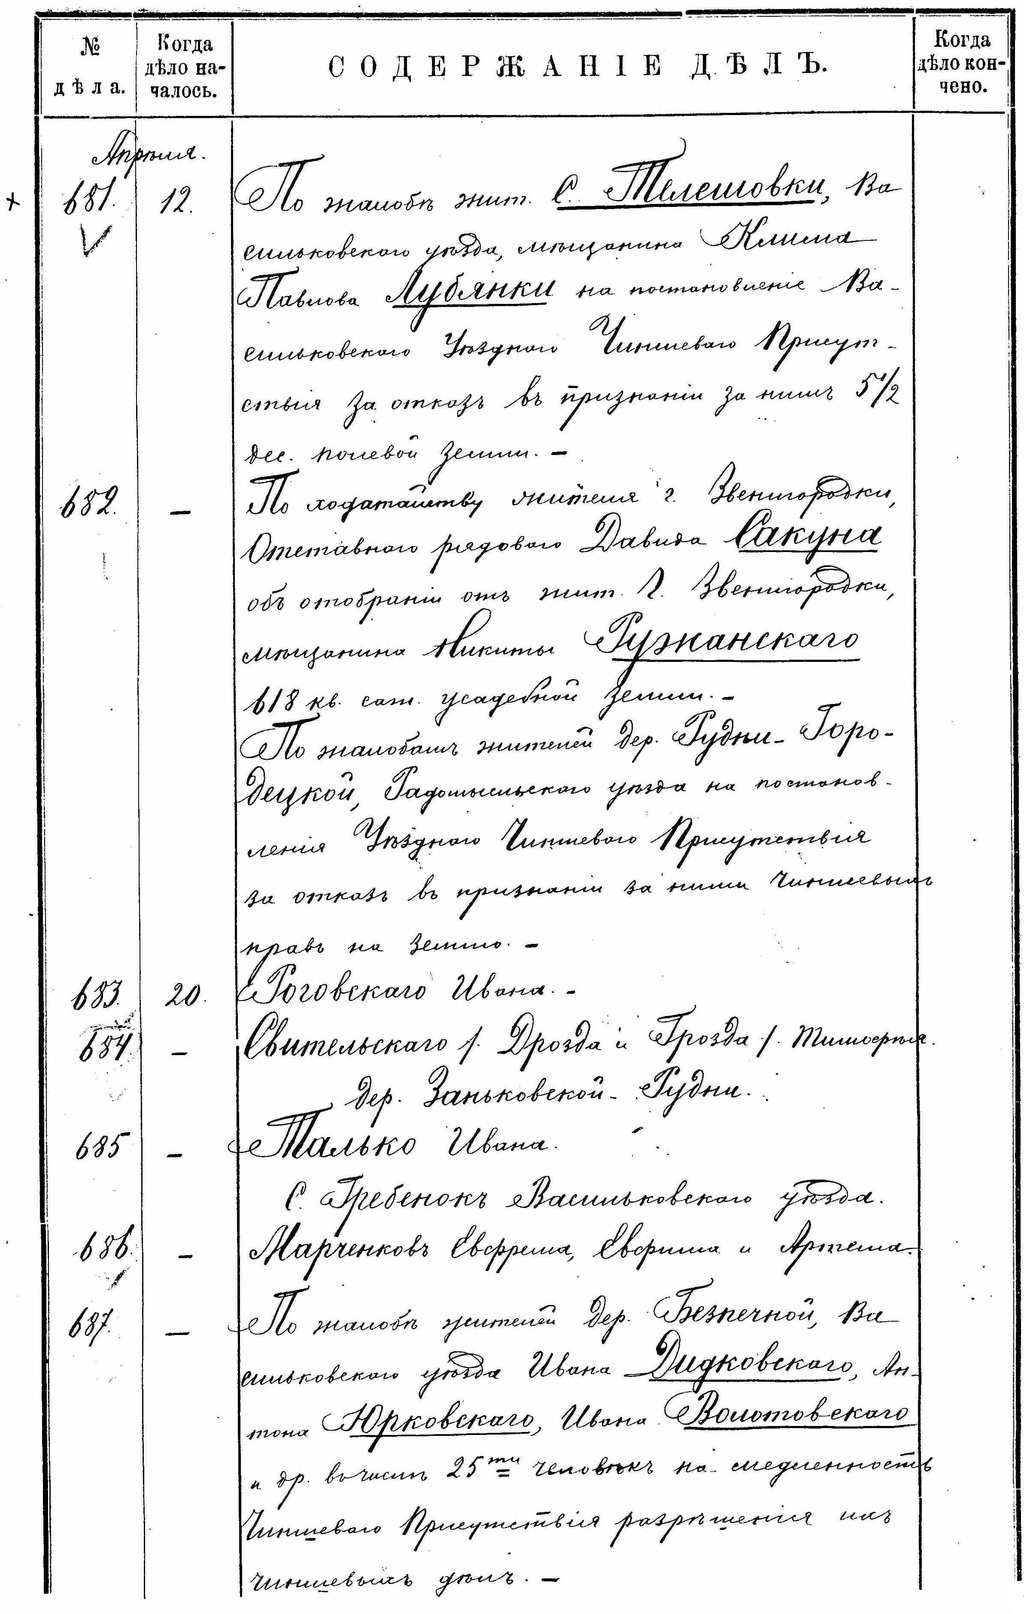 № дѣла.
Когда дѣло началось.
СОДЕРЖАНІЕ ДѢЛЪ.
Когда дѣло кончено.
Апрѣля.
681. 12. По жалобѣ жит. С. Телешовки, Ва
сильковского уѣзда, мѣщанина Клима
Павлова Лубянки на постановленіе Ва-
сильковского Уѣздного Чиншевого Присут-
ствія за отказъ въ признаніи за нимъ 5 1/2
дес. полевой земли. —
682. — По ходатайству жителя г. Звенигородки,
Отставного рядового Давида Сакуна
объ отобраніи отъ жит. г. Звенигородки,
мѣщанина Никиты Ружанскаго
618 кв. саж. усадебной земли. —
По жалобамъ жителей дер. Рудни-Горо-
децкой, Радомысльского уѣзда на постанов-
ленія Уѣздного Чиншевого Присутствія
за отказъ въ признаніи за ними Чиншевыхъ
правъ на землю. —
683. 20. Роговскаго Ивана. —
684. — Свительскаго /. Дрозда и Грозда /. Тимоѳея.
дер. Заньковской-Рудни.
685 — Талько Ивана.
С. Гребенокъ Васильковского уѣзда.
686. — Марченковъ Евфрема, Евфима и Артема.
687. — По жалобѣ жителей дер. Безпечной, Ва
сильковского уѣзда Ивана Дидковскаго, Ан-
тона Юрковскаго, Ивана Волотовскаго
и др. въ числѣ 25ти человѣкъ на медленность
Чиншевого Присутствія разрѣшенія ихъ
чиншевыхъ дѣлъ. —